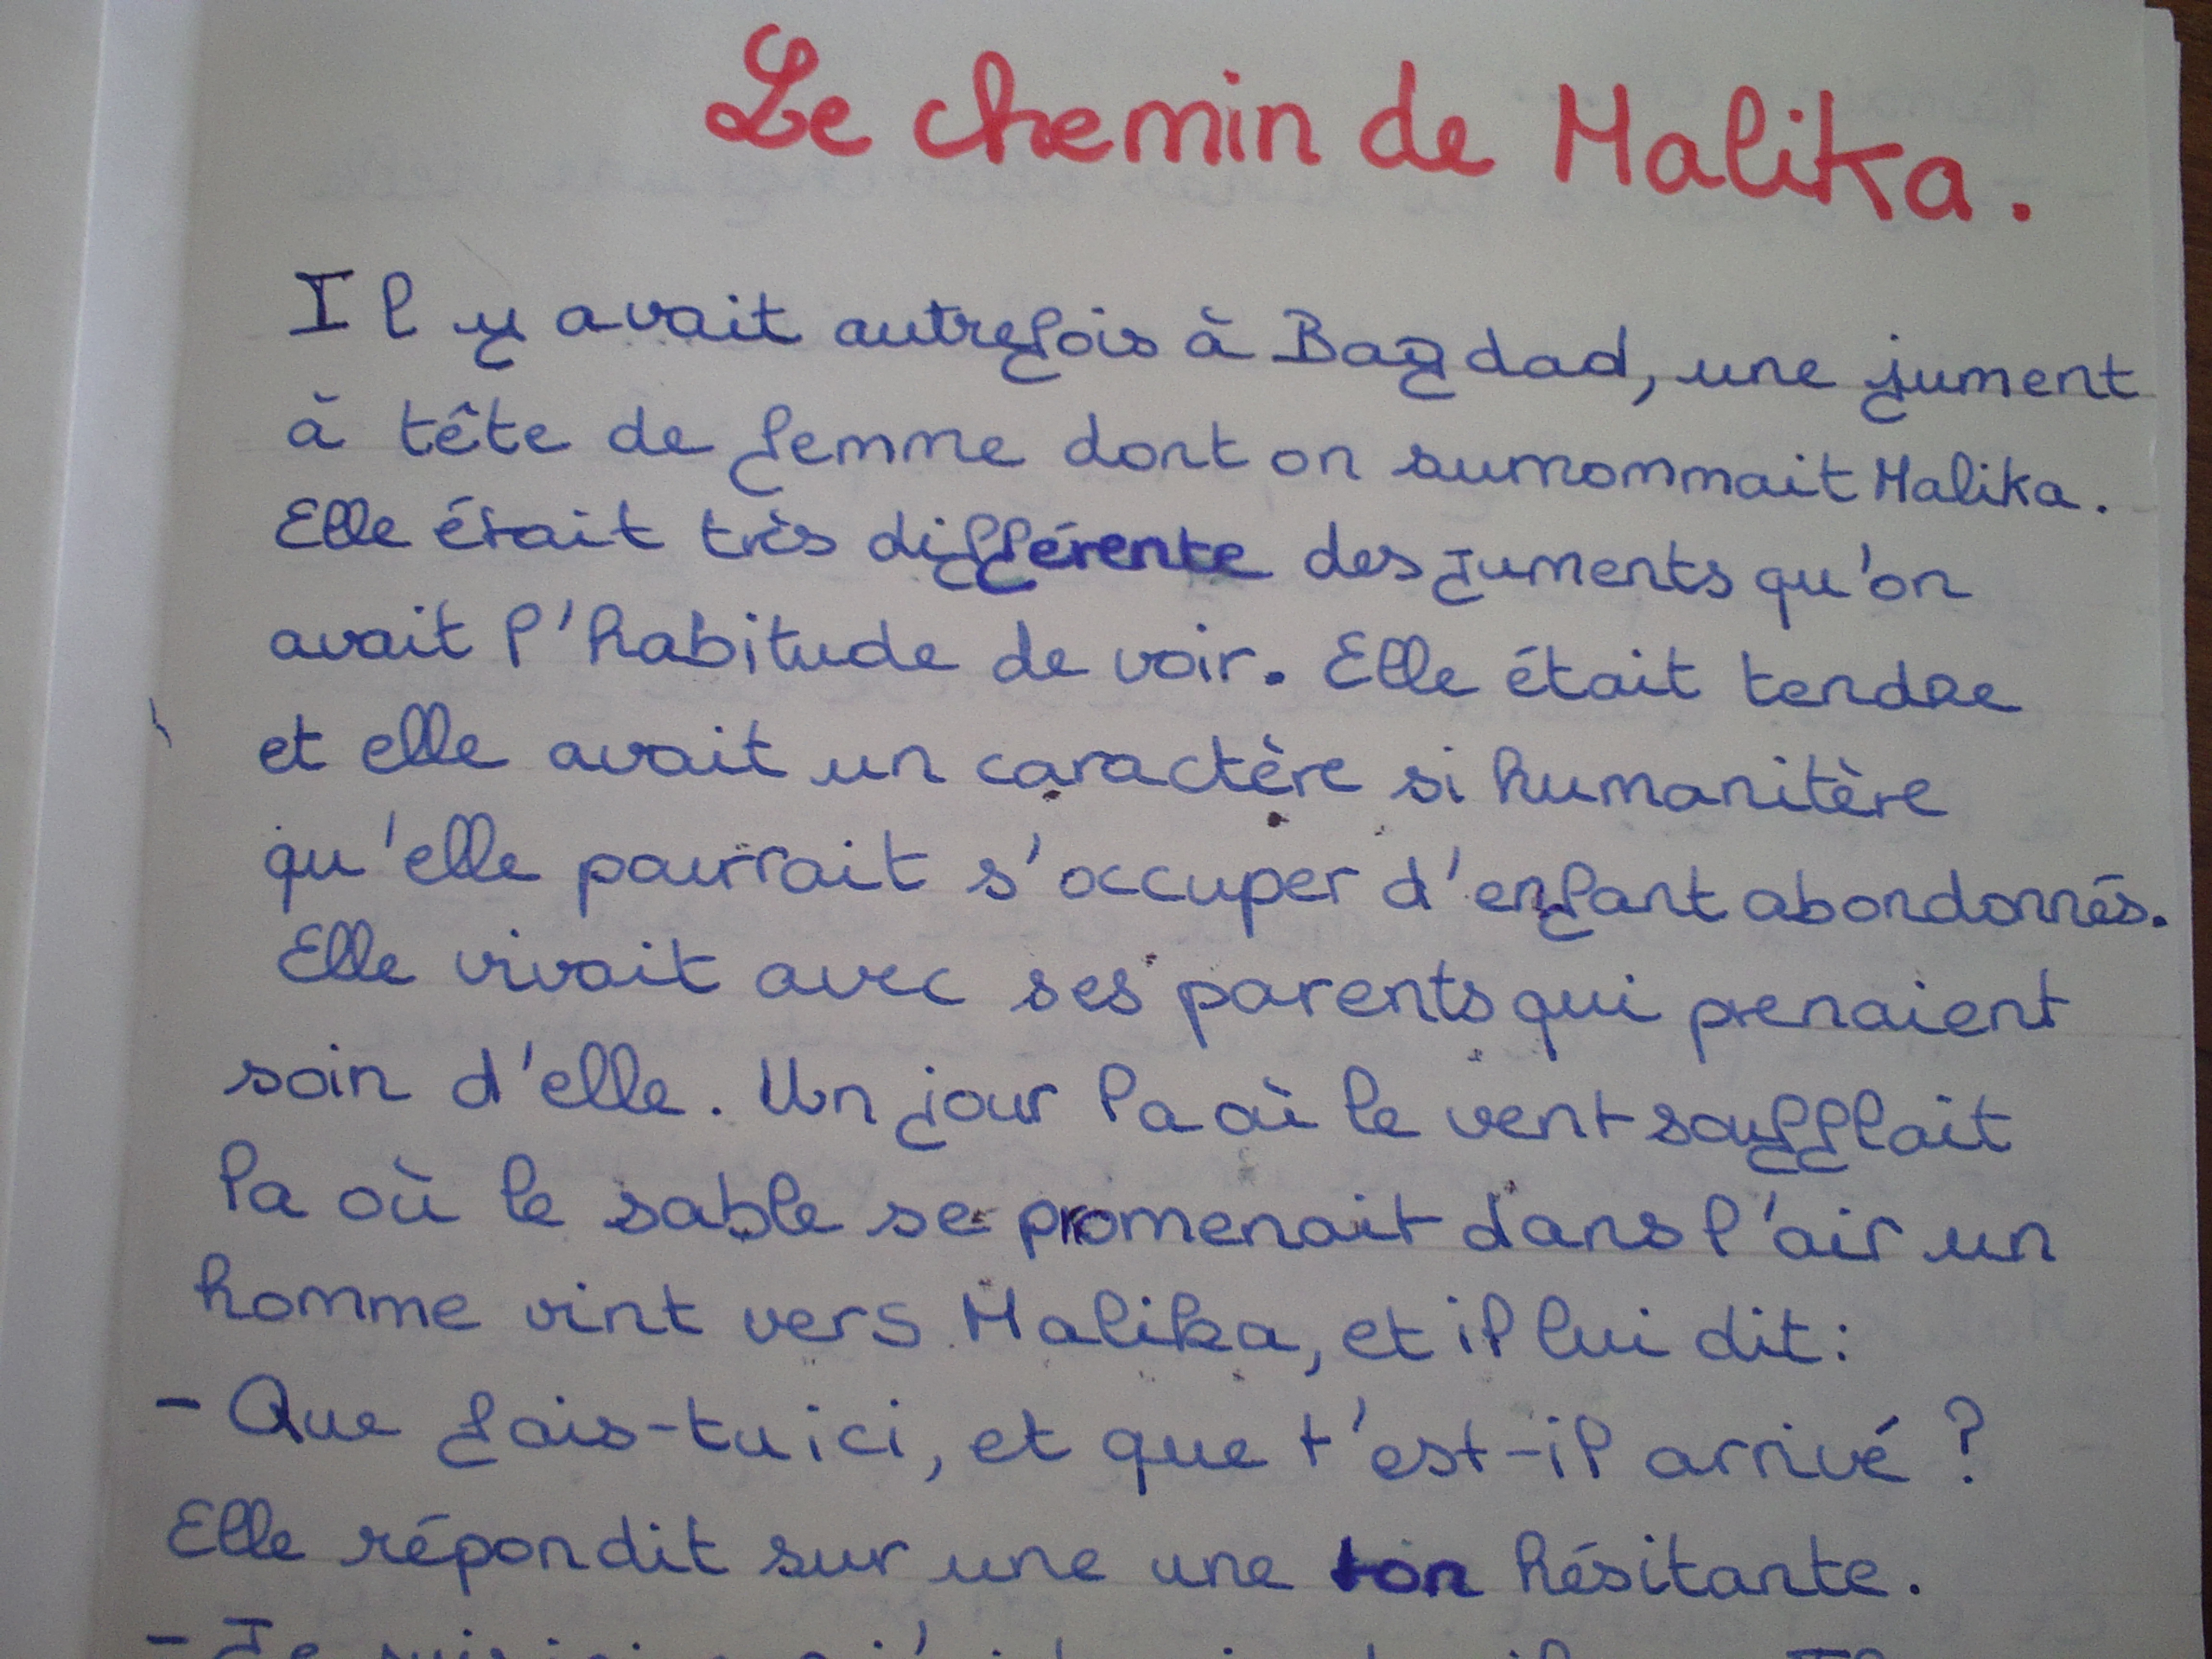 Le chemin de Malika.
Il y avait autrefois à Bagdad, une jument
à tête de femme dont on surnommait Malika.
Elle était très différente des juments qu'on
avait l'habitude de voir. Elle était tendre
et elle avait un caractère si humanitère
qu'elle pourrait s'occuper d'enfant abondonnés.
Elle vivait avec ses parents qui prenaient
soin d'elle. Un jour la où le vent soufflait
la où le sable se promenait dans l'air un
homme vint vers Malika, et il lui dit:
- Que fais-tu ici, et que t'est-il arrivé ?
Elle répondit sur une une ton hésitante.
- Je suis ici